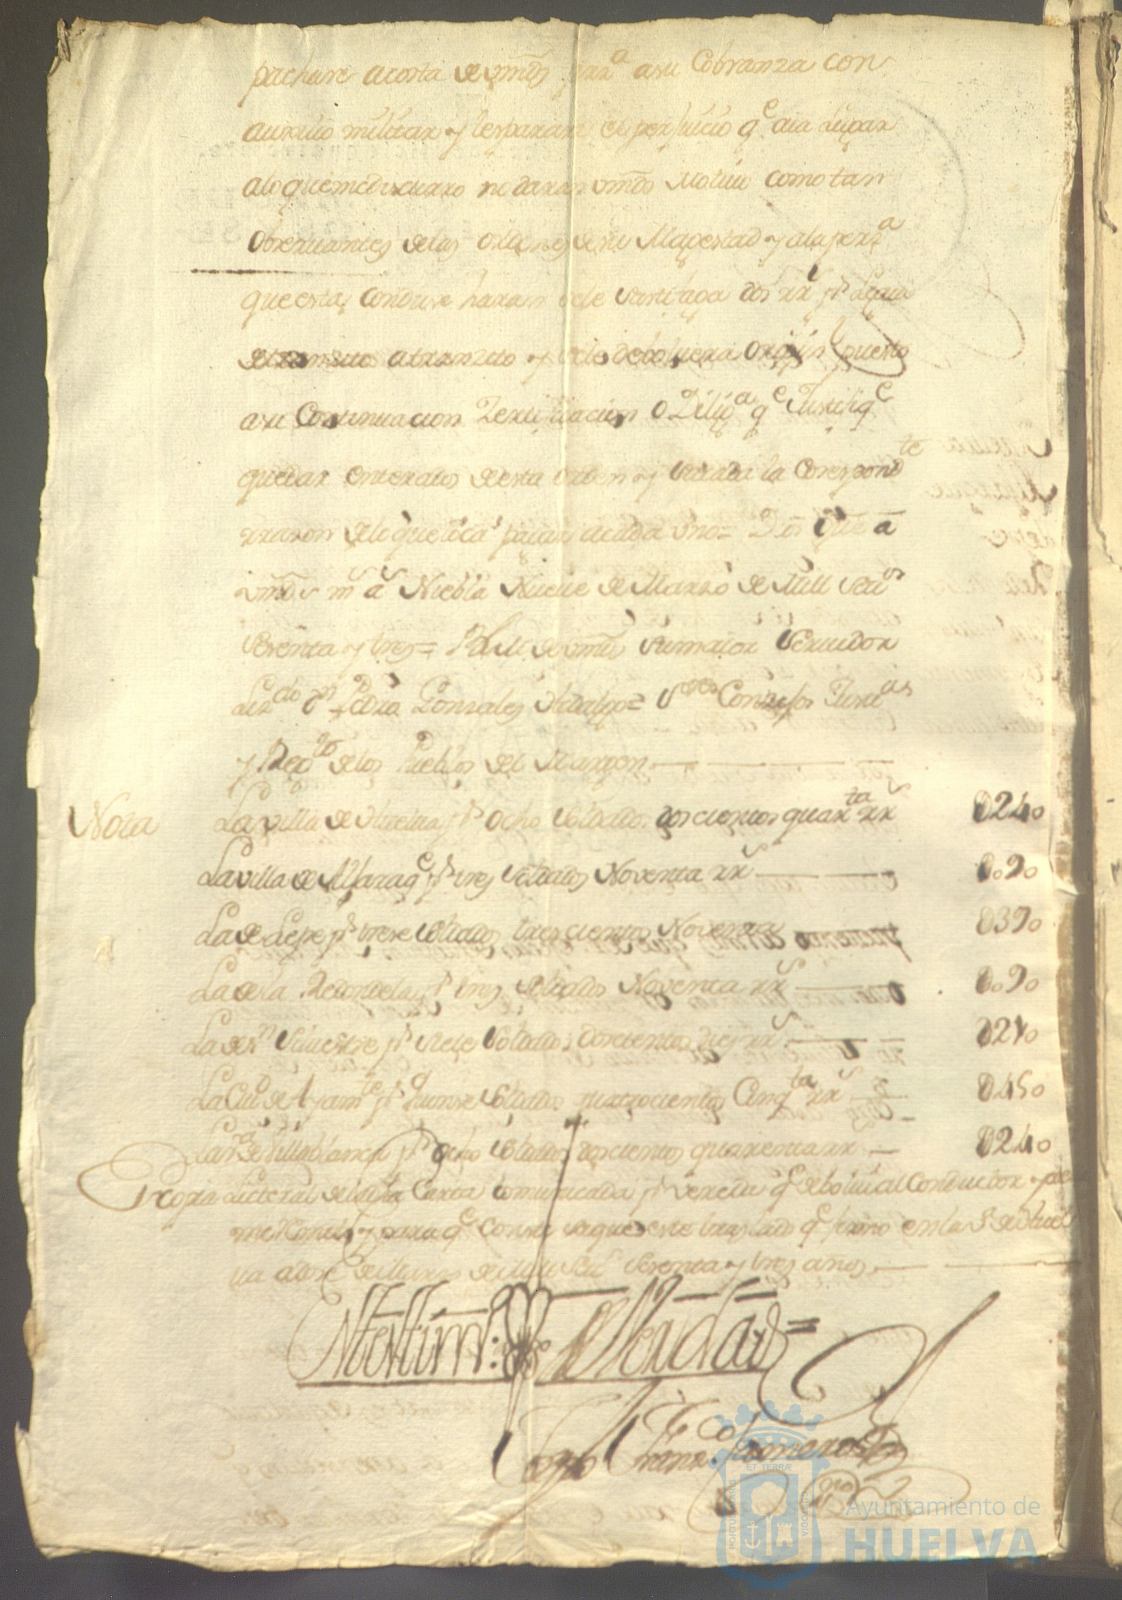 pachare acosta de Vmds parª asu Cobranza con
auxilio militar y les parara el perjuicio qᵉ aia Lugar
alo que me discurro no daran Vmds Motivo como tan
Obseruantes de las Ordenes de su Magestad y ala perzª
que esta Conduse haran se le Satisfaga dos rrˢ pʳ Legua
de transito atransito y se le deboluera Orijinl puesto
asu Continuacion Zertificacion O Diligª qᵉ Justifiqᵉ
quedar enterados de esta orden y sacada la Correspondᵗᵉ
rrazon de lo que toca pagar acada uno = Dios Gue a
Vmds mˢ aˢ Niebla Nueue de Marzo de Mill Setˢ
Setenta y tres = BLM de Vmds su maior Seruidor
Lizᵈᵒ Dⁿ Pedro Gonzales Hidalgo = Sʳᵉˢ Consejos Justªˢ
y Regᵗᵒ de los Pueblos del Margen
Nota La Villa de Huelua pʳ ocho Soldados doscientos quarᵗª rrˢ 0240
La villa de Aljaraqᵉ pʳ tres Soldados Noventa rrˢ 0090
La de Lepe pʳ trese Soldados trescientos Noventa 0390
La de la Redondela pʳ tres Soldados Noventa rrˢ 0090
La de Sⁿ Siluestre pʳ Siete Soldados doscientos dies rrˢ 0210
La Ciud de Ayamᵗᵉ pʳ Quinse Soldados quatrocientos Cinqᵗª rrˢ 0450
La de Villablanca pʳ ocho Soldados doscientos quarenta rr 0240
Copia Literal de la dha Carta comunicada pʳ Vereda qᵉ debolui al Conductor
me Remito y para qᵉ Conste saque este traslado qᵉ firmo en la Vª de Huel
va a dose de Marzo de mill Setˢ Setenta y tres años
Diego Franᶜᵒ Romero
Ayuntamiento de
HUELVA